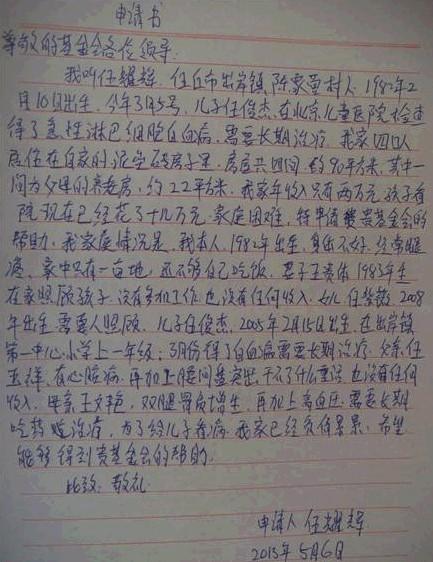 申请书
尊敬的基金会各位领导:
我叫任耀辉,任丘市出岸镇陈家营村人,1982年2
月10日出生,今年3月5号,儿子任俊杰,在北京儿童医院检查
得了急性淋巴细胞白血病,需要长期治疗,我家四口人
居住在自家的泥学破房子里,房屋共四间,约90平方米,其中一
间为父母的养老房,约22平方米,我家年收入只有两万元,孩子看
院现在已经花了十几万元,家庭困难,特申请贵基金会的
帮助,我家庭情况是,我本人,1982年出生,身体不好,经常
家中只有一亩地,还不够自己吃饭,妻子王 1983年生
在家照顾孩子,没有参加工作也没有任何收入,女儿任 2008
年出生,需要人照顾,儿子任俊杰,2005年2月15日出生,在出岸镇
第一中心小学上一年级,3月份得了白血病需要长期治疗,父亲,任
玉祥,有心脏病,再加上腰间盘突出,干不了什么重活,也没有任何
收入,母亲王文艳,双腿骨质增生,再加上高血压,需要长期
吃药 治疗,为了给儿子看病,我家已经负债累累,希望
能够得到贵基金会的帮助。
此致:敬礼
申请人 任耀辉
2013年5月6日